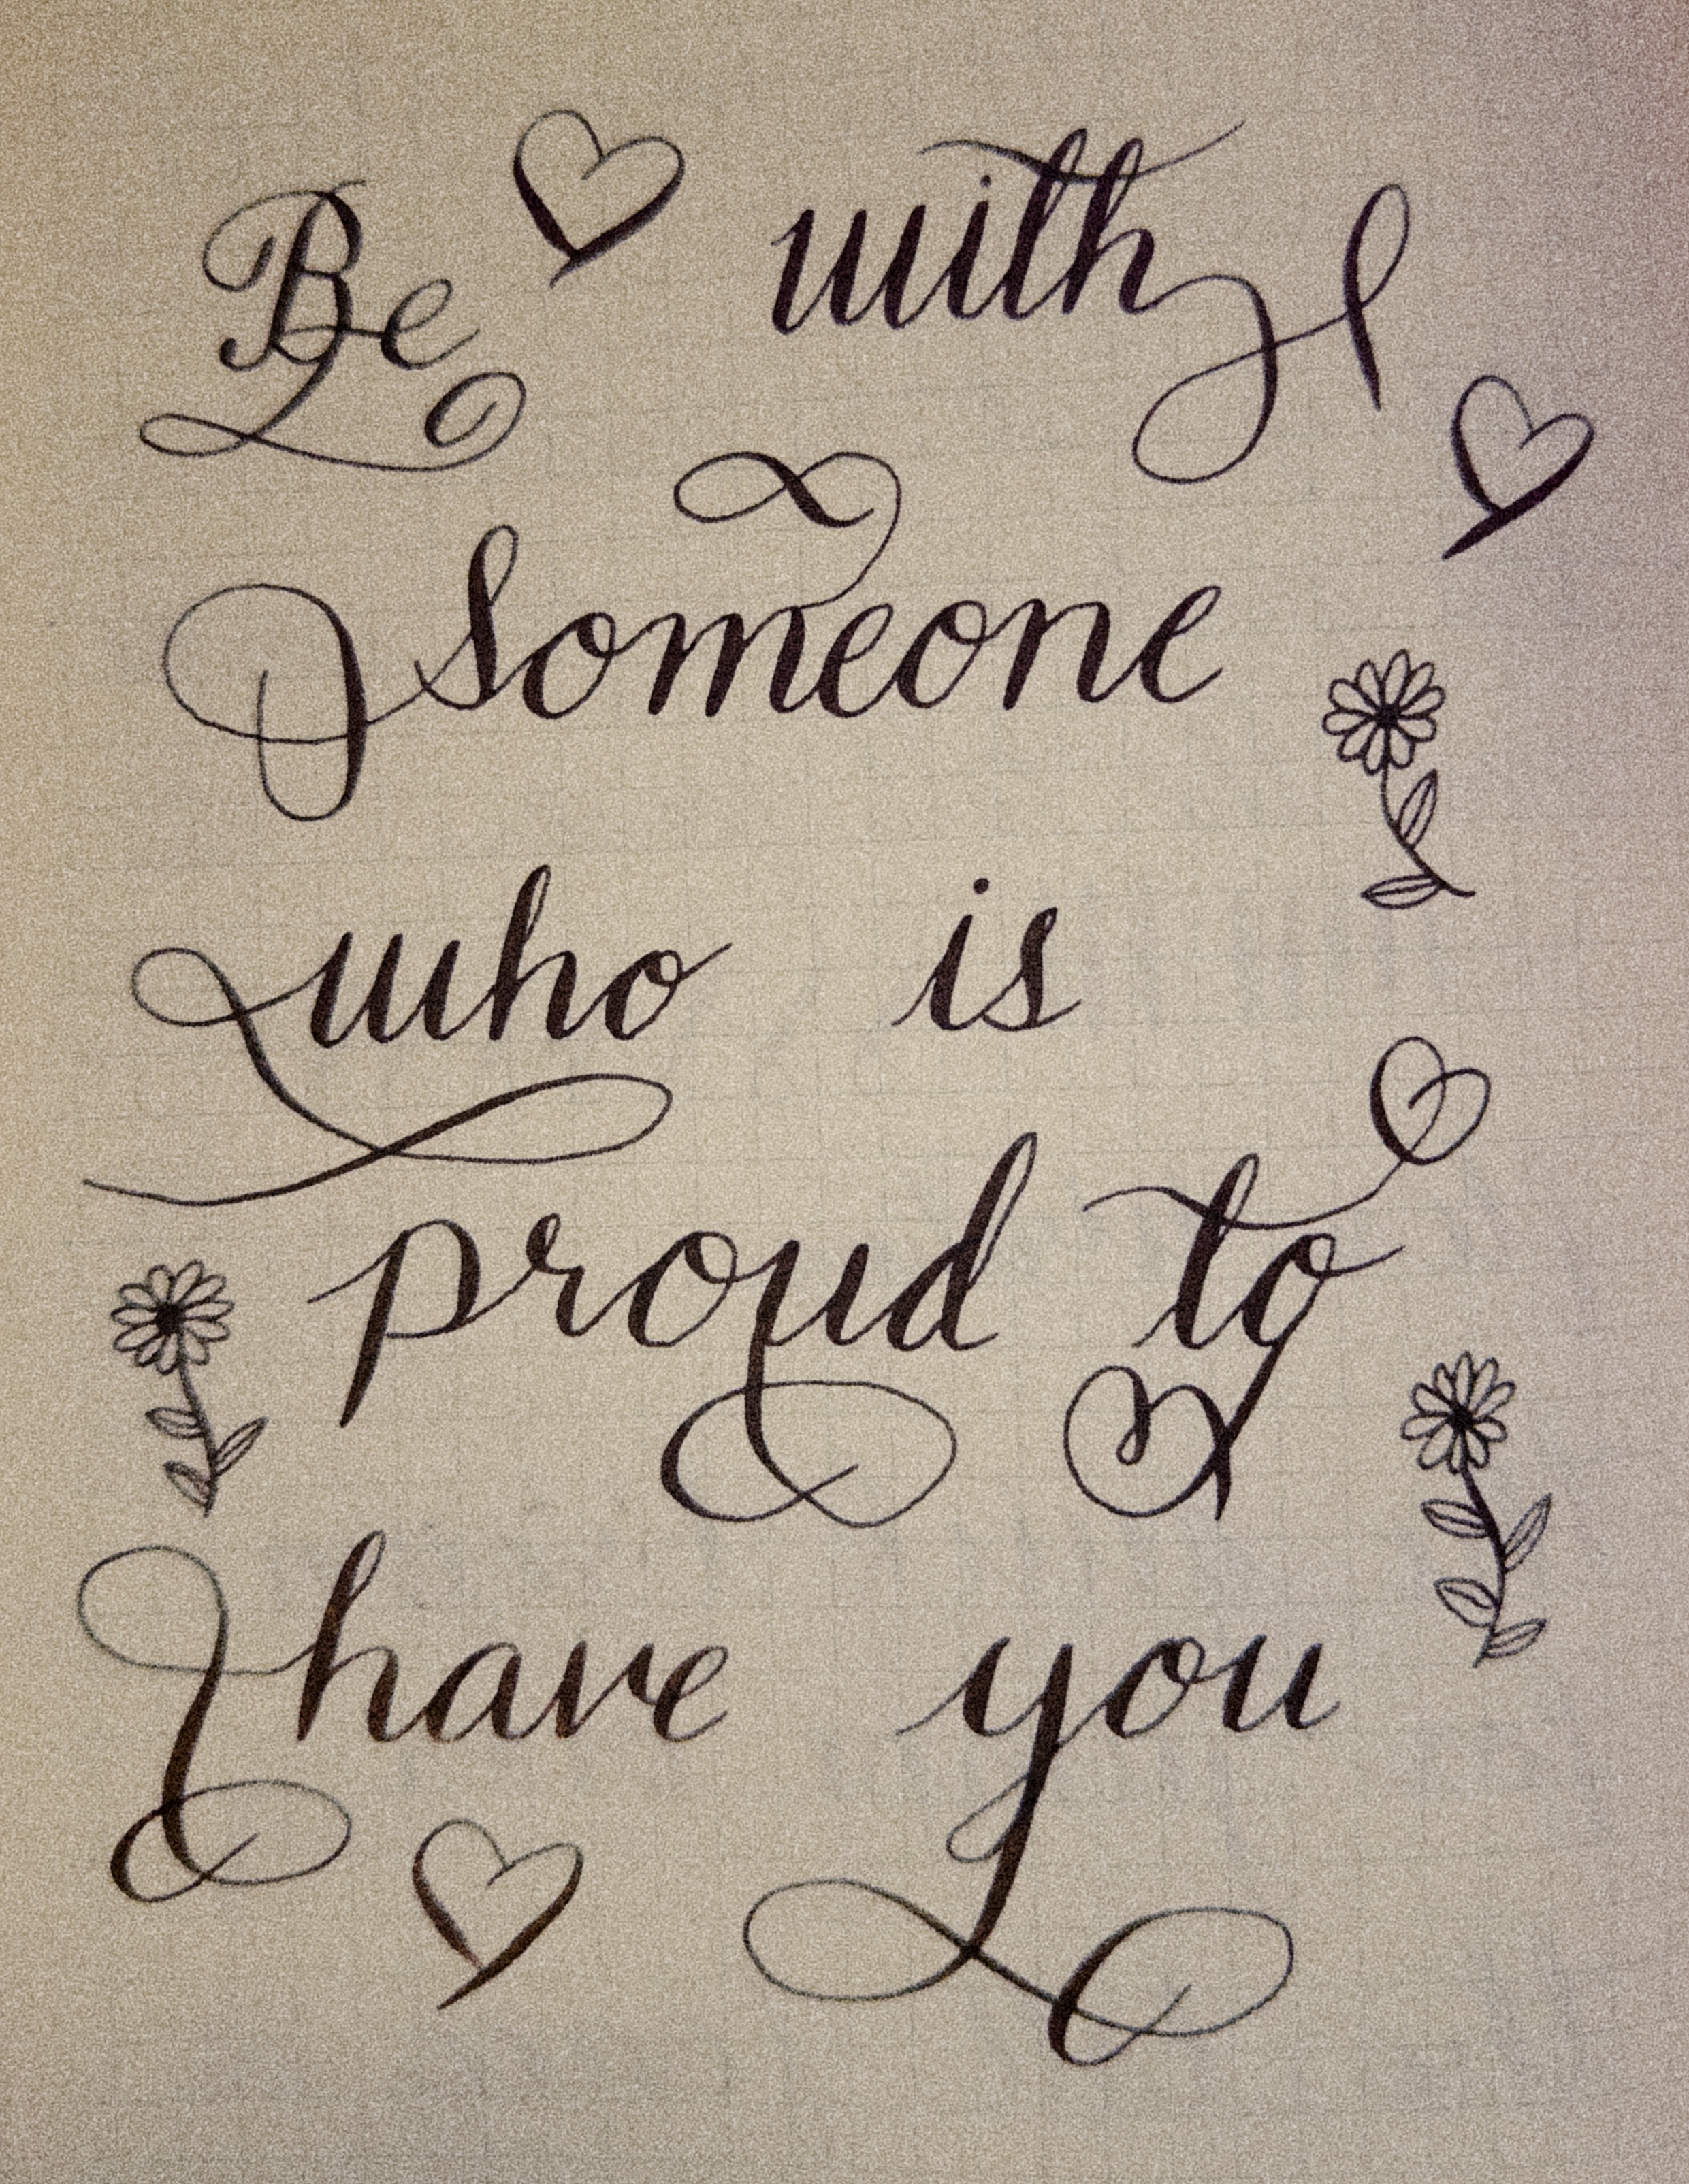 Be with
someone
who is
proud to
have you